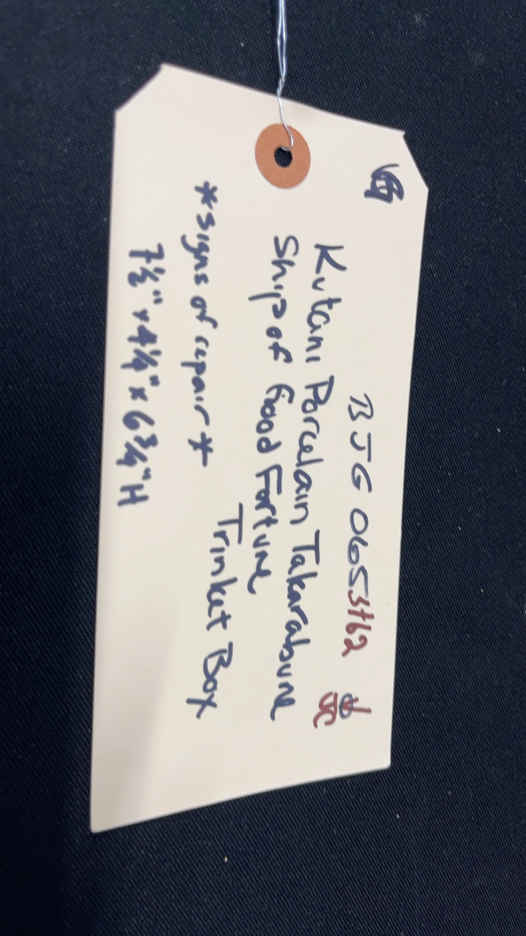 BJG 0653762
Kutani Porcelain Takarabune
Ship of Good Fortune
Trinket Box
*signs of repair*
7½" x 4¼" x 6¾" H